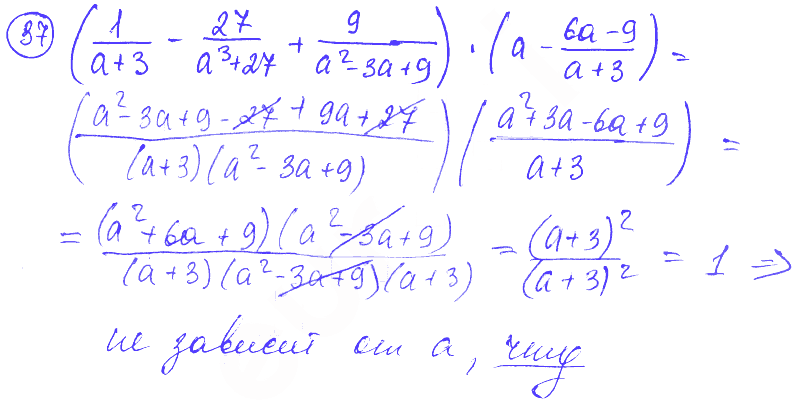 37 (1/(a+3) - 27/(a³+27) + 9/(a²-3a+9)) · (a - (6a-9)/(a+3)) =
((a²-3a+9-27+9a+27)/((a+3)(a²-3a+9))) ((a²+3a-6a+9)/(a+3)) =
= ((a²+6a+9)(a²-3a+9))/((a+3)(a²-3a+9)(a+3)) = (a+3)²/(a+3)² = 1 ⇒
не зависит от a, чтд